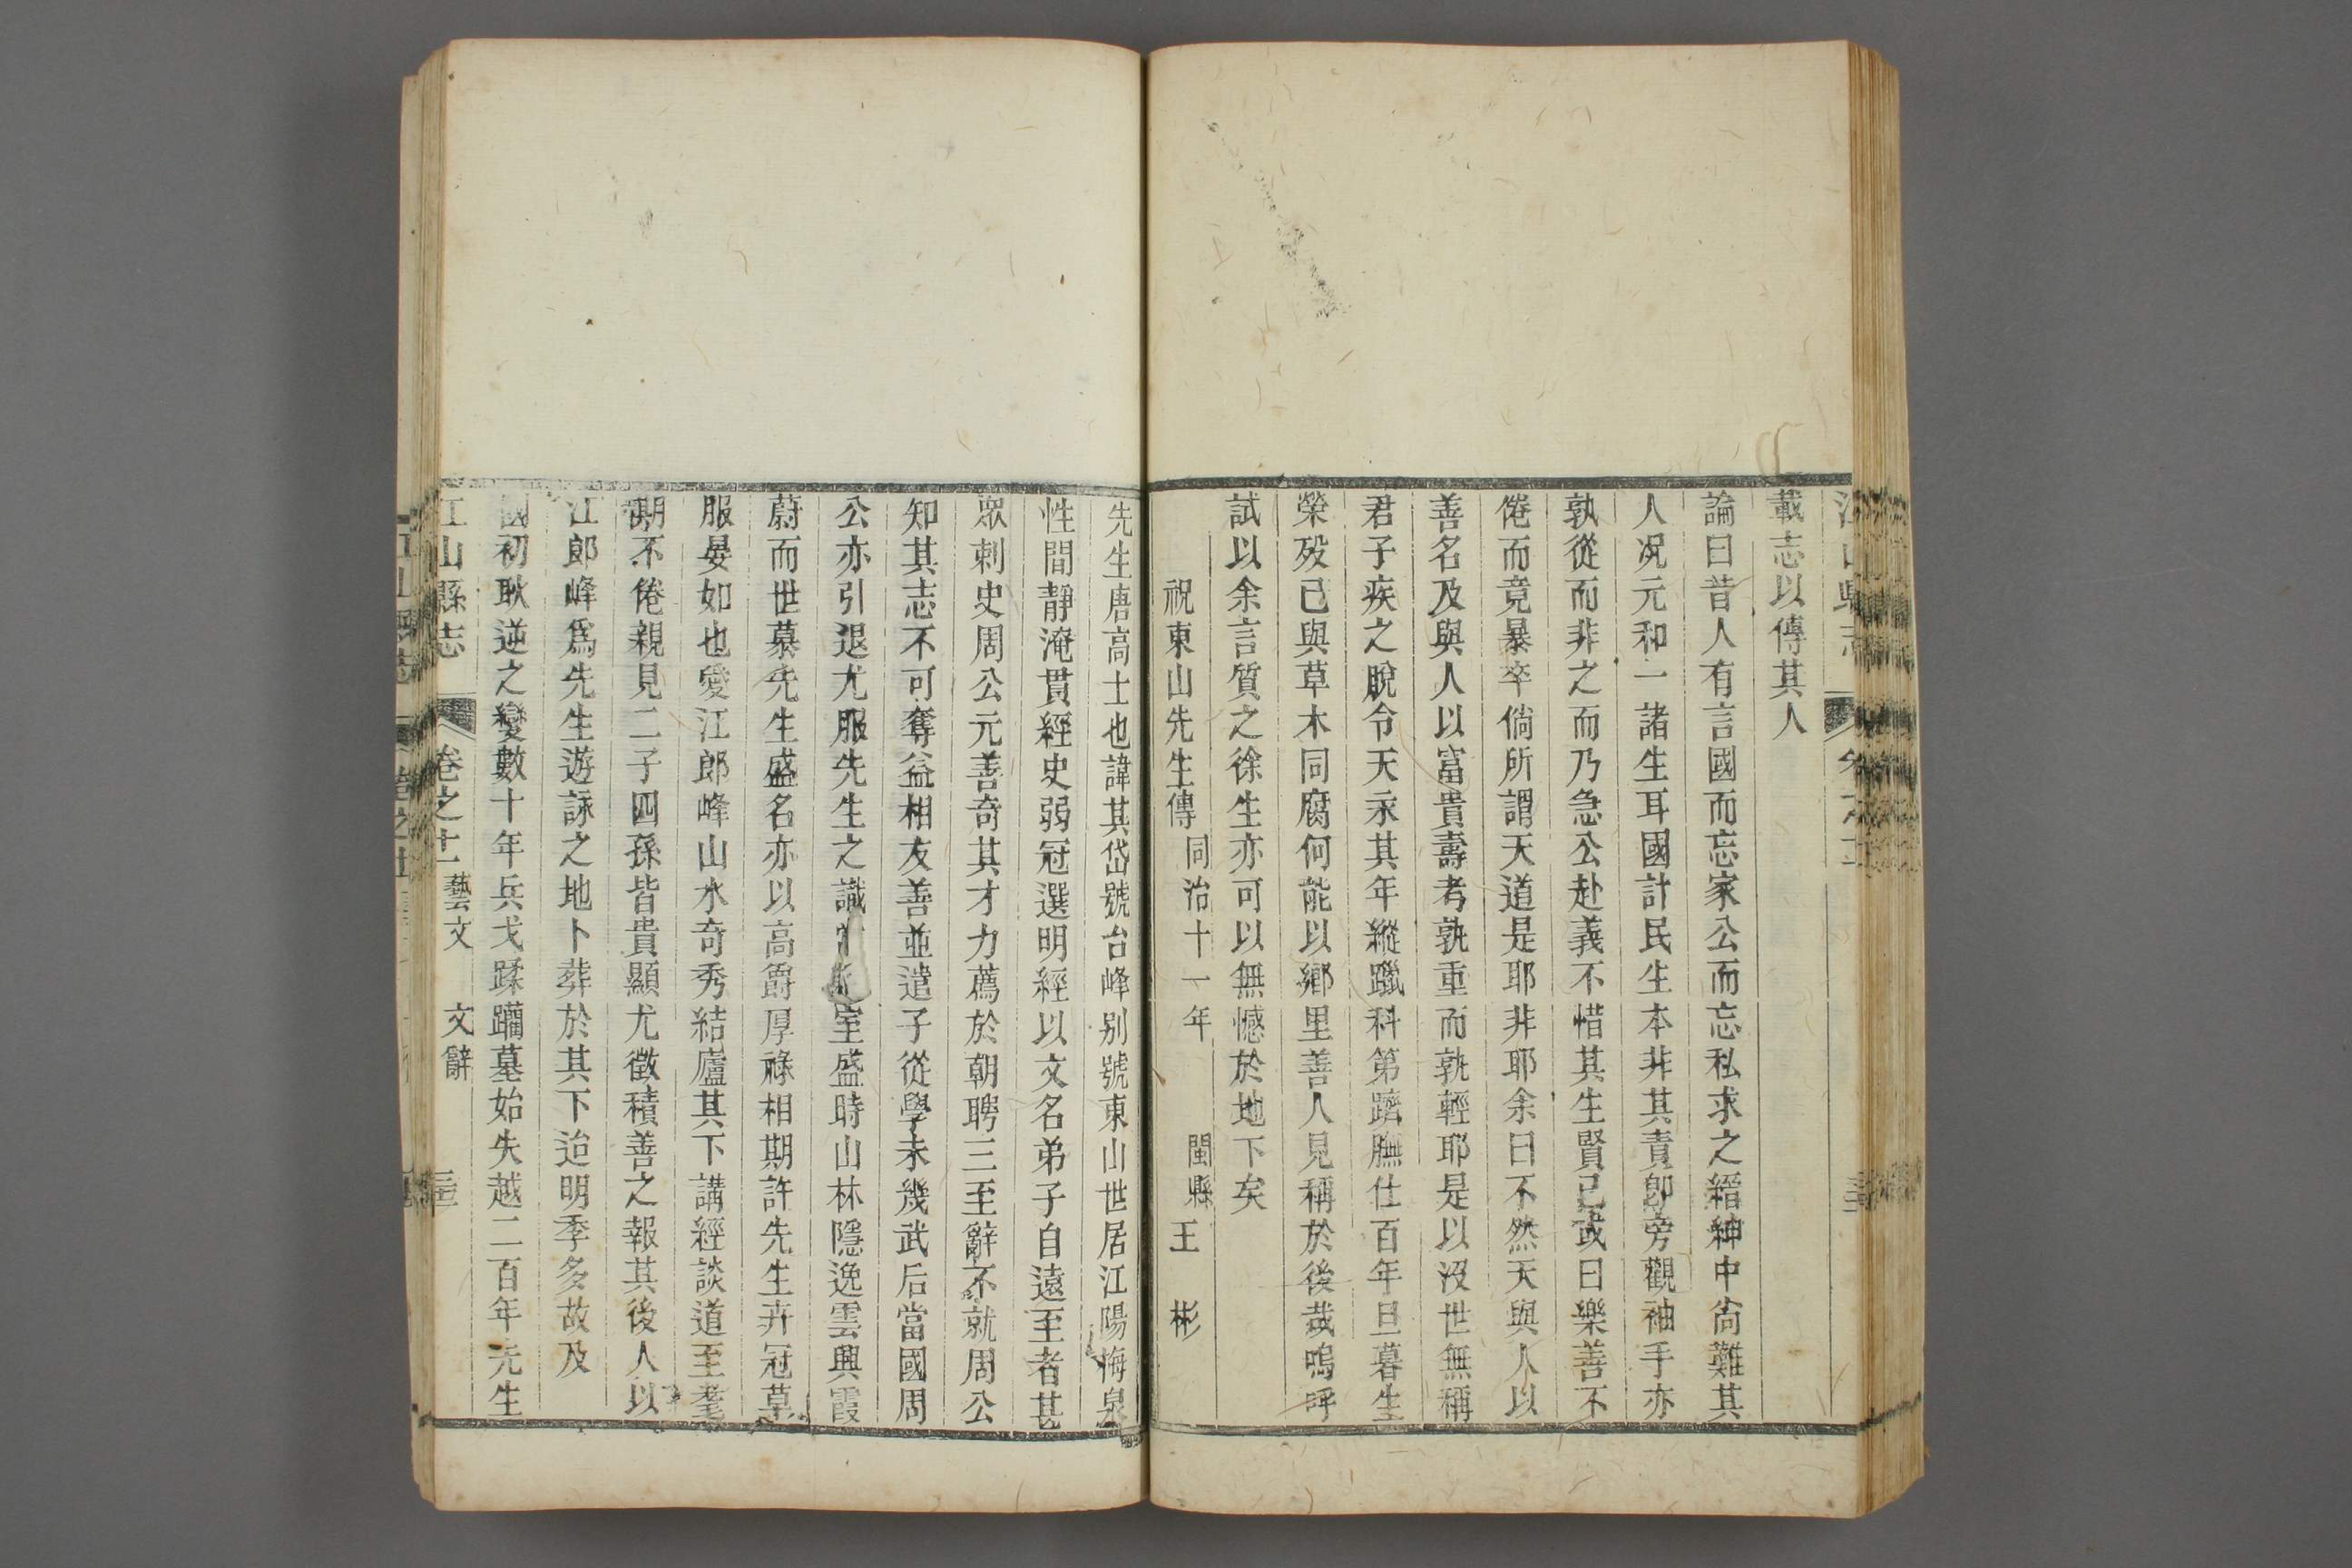 載志以傳其人
論曰昔人有言國而忘家公而忘私求之縉紳中尙難其
人况元和一諸生耳國計民生本非其責卽旁觀袖手亦
孰從而非之而乃急公赴義不惜其生賢已或曰樂善不
倦而竟暴卒倘所謂天道是耶非耶余曰不然天與人以
善名及與人以富貴壽考孰重而孰輕耶是以沒世無稱
君子疾之脫令天永其年縱躐科第躋膴仕百年旦暮生
榮歿已與草木同腐何能以鄉里善人見稱於後哉嗚呼
試以余言質之徐生亦可以無憾於地下矣
祝東山先生傳 同治十一年 閩縣 王彬
先生唐高士也諱其岱號台峰別號東山世居江陽梅泉
性間靜淹貫經史弱冠選明經以文名弟子自遠至者甚
眾刺史周公元善奇其才力薦於朝聘三至辭不就周公
知其志不可奪益相友善並遣子從學未幾武后當國周
公亦引退尤服先生之識室盛時山林隱逸雲興霞
蔚而世慕先生盛名亦以高爵厚祿相期許先生卉冠草
服晏如也愛江郎峰山水奇秀結廬其下講經談道至耄
期不倦親見二子四孫皆貴顯尤徵積善之報其後人以
江郎峰爲先生遊詠之地卜葬於其下迨明季多故及
國初耿逆之變數十年兵戈蹂躪墓始失越二百年先生
江山縣志 卷之十一 藝文 文辭